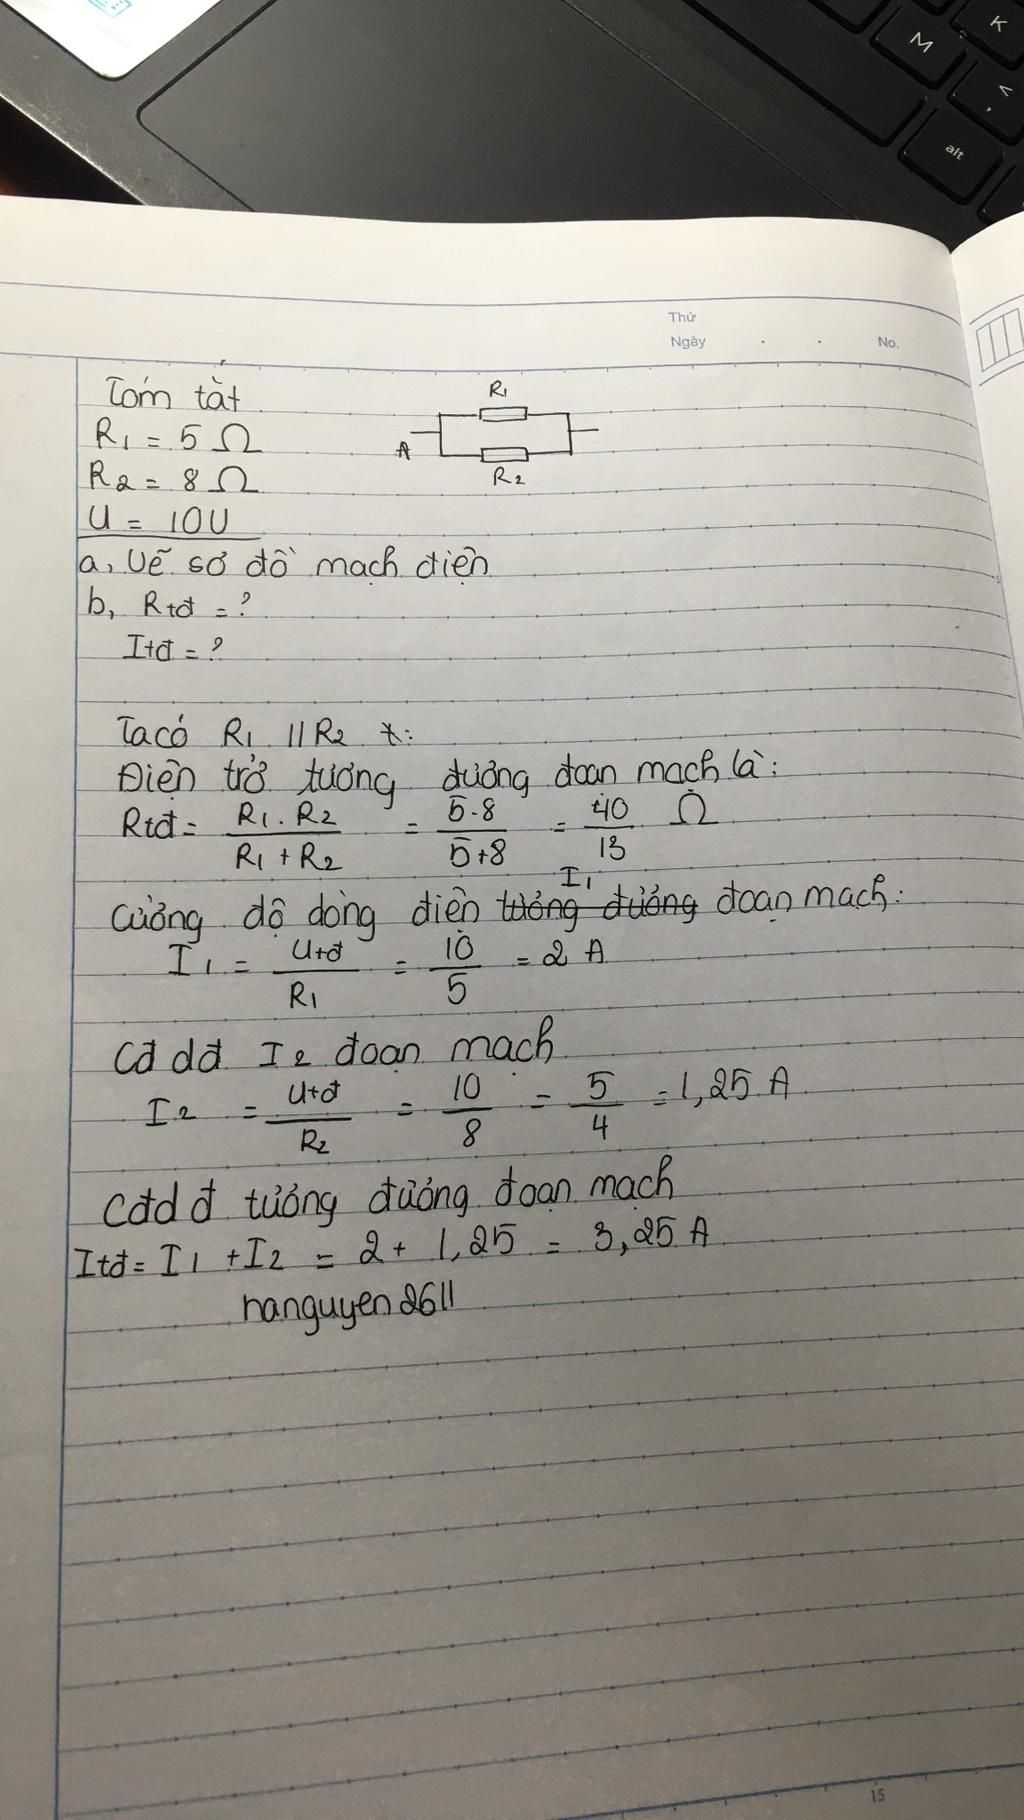 K
M
<
,
alt
Thứ
Ngày . . No.
Tóm tắt
R1 = 5 Ω
R2 = 8 Ω
U = 10U
R1
A
R2
a, Vẽ sơ đồ mạch điện
b, Rtđ = ?
Itđ = ?
Ta có R1 // R2 t:
Điện trở tương đương đoạn mạch là:
Rtđ = R1 . R2 / R1 + R2 = 5.8 / 5+8 = 40 / 13 Ω
I1
Cường độ dòng điện tương đương đoạn mạch:
I1 = Utđ / R1 = 10 / 5 = 2 A
Cđ dđ I2 đoạn mạch
I2 = Utđ / R2 = 10 / 8 = 5 / 4 = 1,25 A
Cđdđ tương đương đoạn mạch
Itđ = I1 + I2 = 2 + 1,25 = 3,25 A
nanguyen2611
15